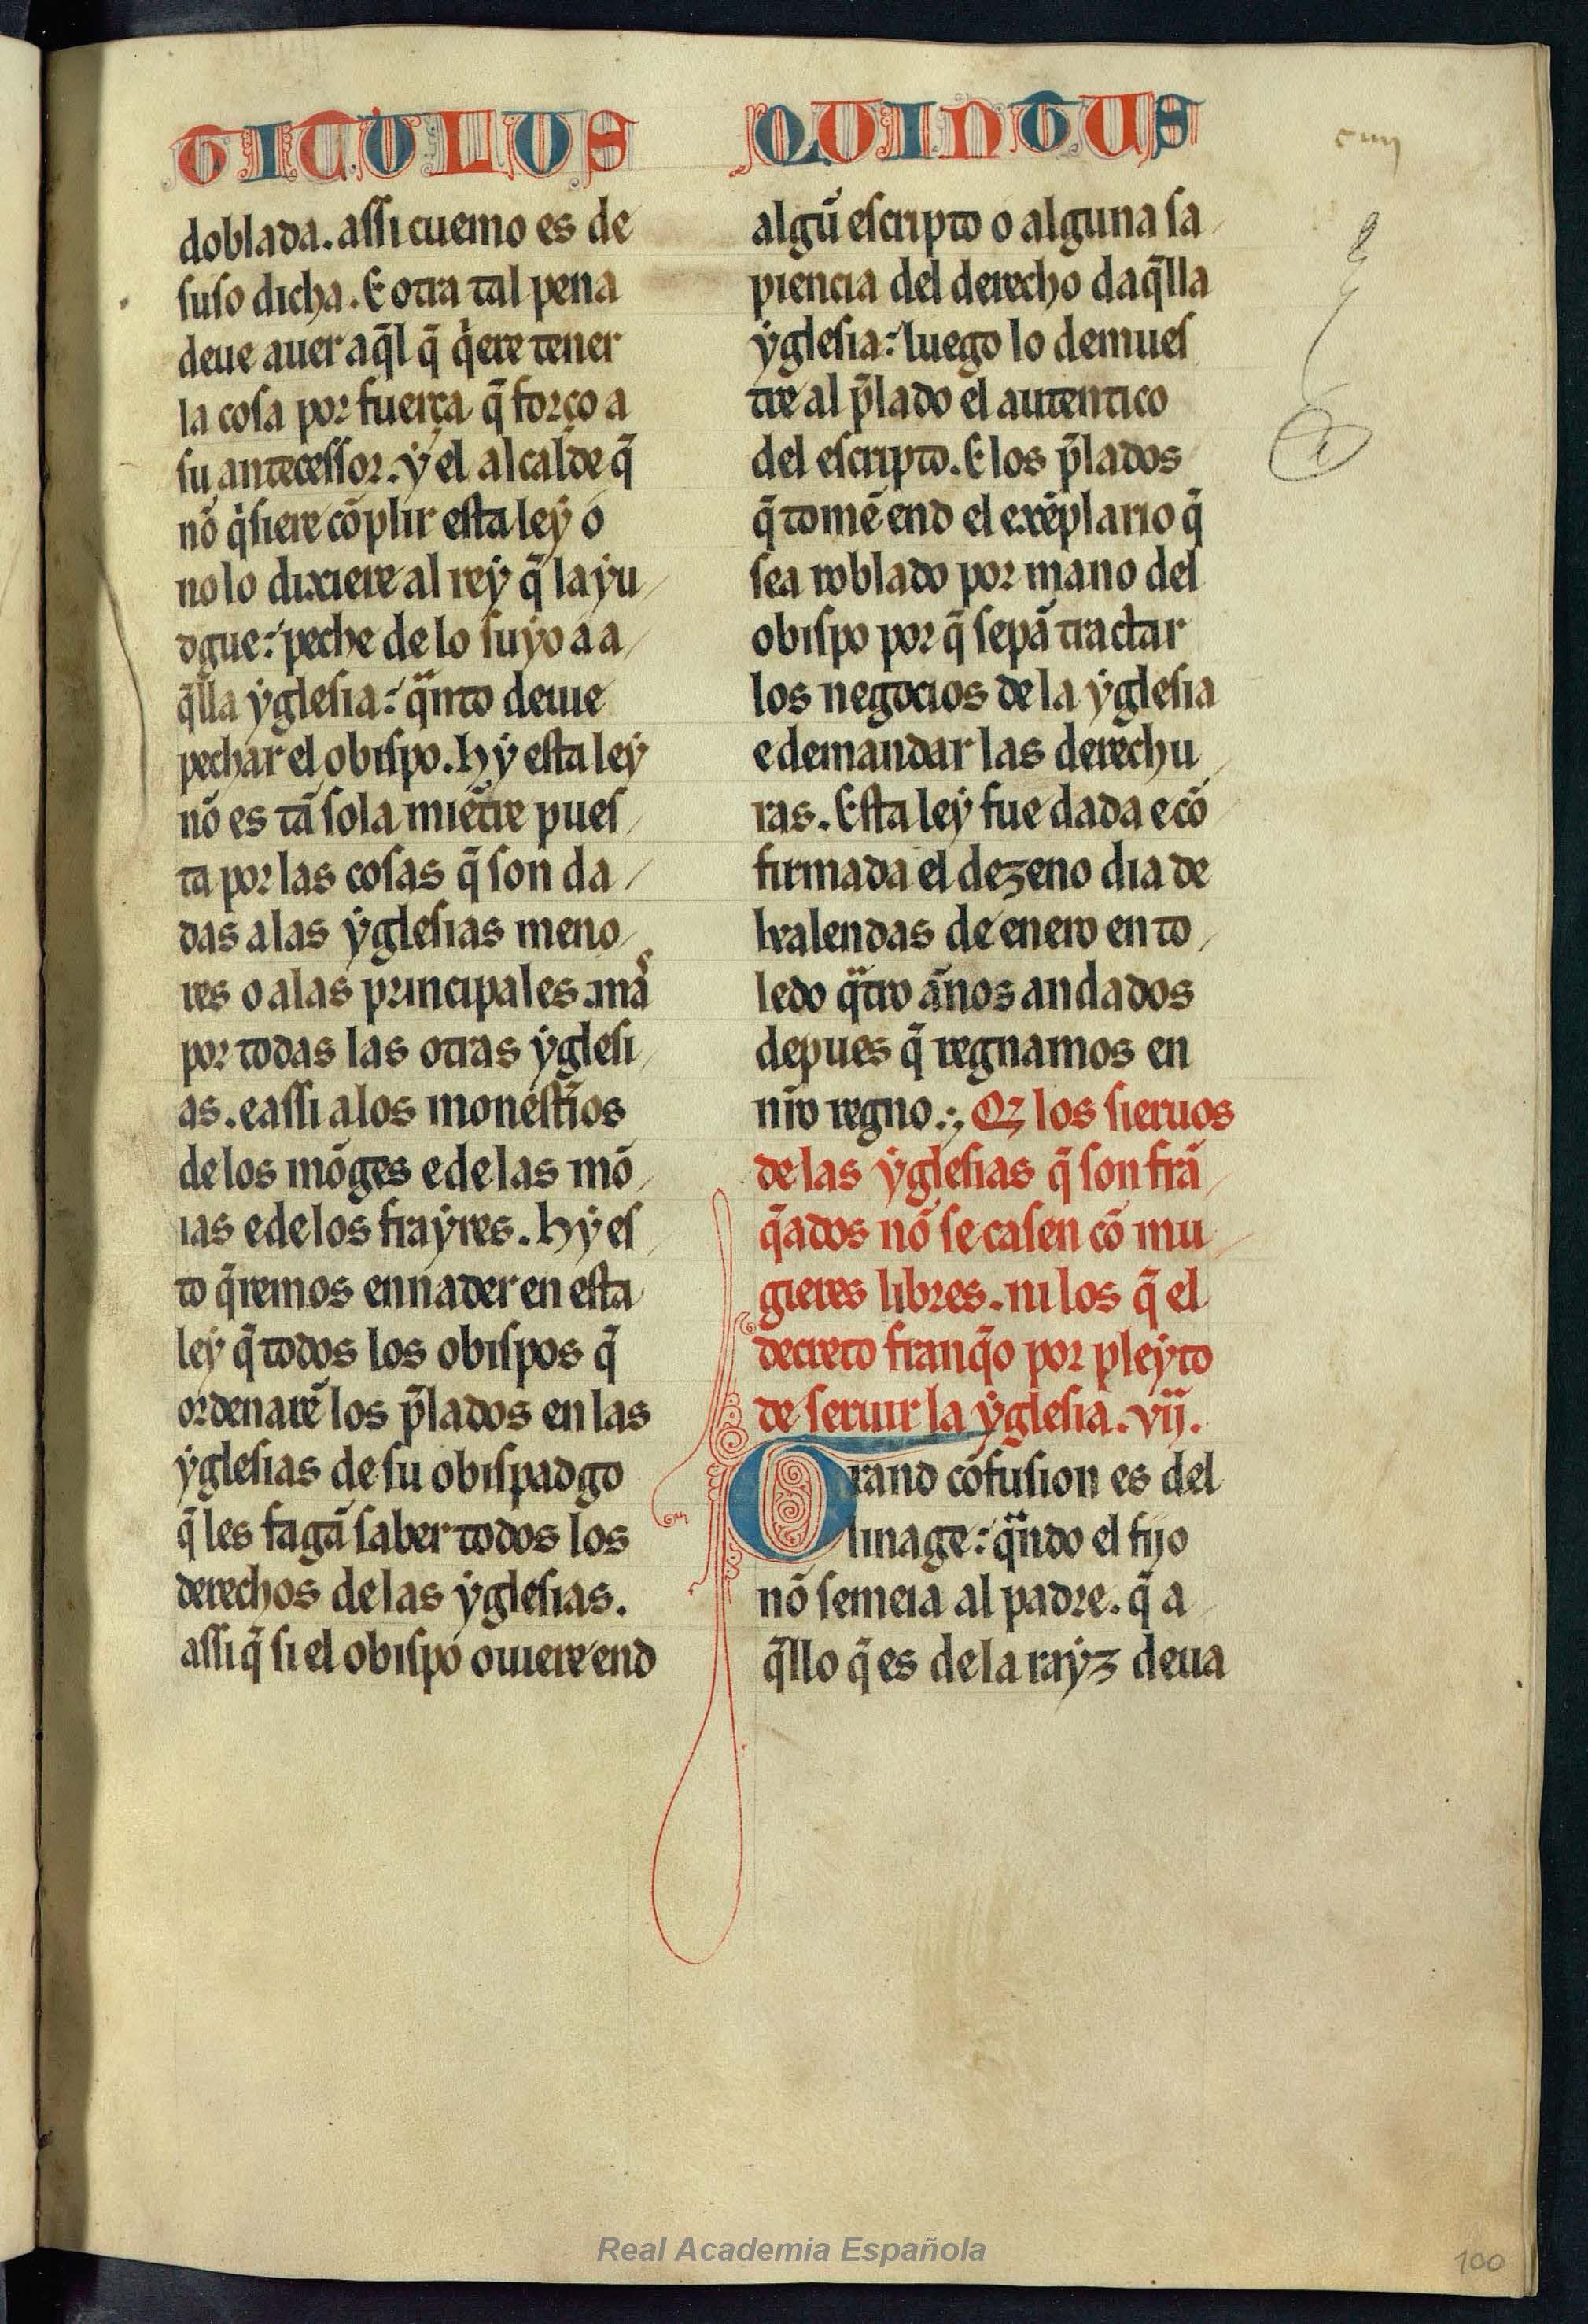 TITULUS
doblada. assi cuemo es de
suso dicha. E otra tal pena
deue auer aq̃l q̃ q̃ere tener
la cosa por fuerça q̃ forço a
su antecessor. ẏ el alcalde q̃
nõ q̃siere cõplir esta leẏ o
no lo dixiere al reẏ q̃ la ẏu
dgue: peche de lo suẏo a a
q̃lla ẏglesia: q̃nto deuie
pechar el obispo. hẏ esta leẏ
nõ es tã sola miẽtre pues
ta por las cosas q̃ son da
das a las ẏglesias meno
res o a las principales. mas
por todas las otras ẏglesi
as. e assi a los monest̃ios
de los mõges e de las mõ
ias e de los fraẏres. hẏ es
to q̃remos ennader en esta
leẏ q̃ todos los obispos q̃
ordenarẽ los p̃lados en las
ẏglesias de su obispadgo
q̃ les fagã saber todos los
derechos de las ẏglesias.
assi q̃ si el obispo ouiere end
QUINTUS
algũ escripto o alguna sa
piencia del derecho daq̃lla
ẏglesia: luego lo demues
tre al p̃lado el autentico
del escripto. E los p̃lados
q̃ tomẽ end el exẽplario q̃
sea roblado por mano del
obispo por q̃ sepã tractar
los negocios de la ẏglesia
e demandar las derechu
ras. Esta leẏ fue dada e cõ
firmada el dezeno dia de
kalendas de enero en to
ledo q̃tro ãnos andados
depues q̃ regnamos en
nr̃o regno. Q̃ los sieruos
de las ẏglesias q̃ son frã
q̃ados nõ se casen cõ mu
gieres libres. ni los q̃ el
decreto franq̃o por pleẏto
de seruir la ẏglesia. vij.
Grand cõfusion es del
linage: q̃ndo el fijo
nõ semeia al padre. q̃ a
q̃llo q̃ es de la raẏz deua
Real Academia Española
100